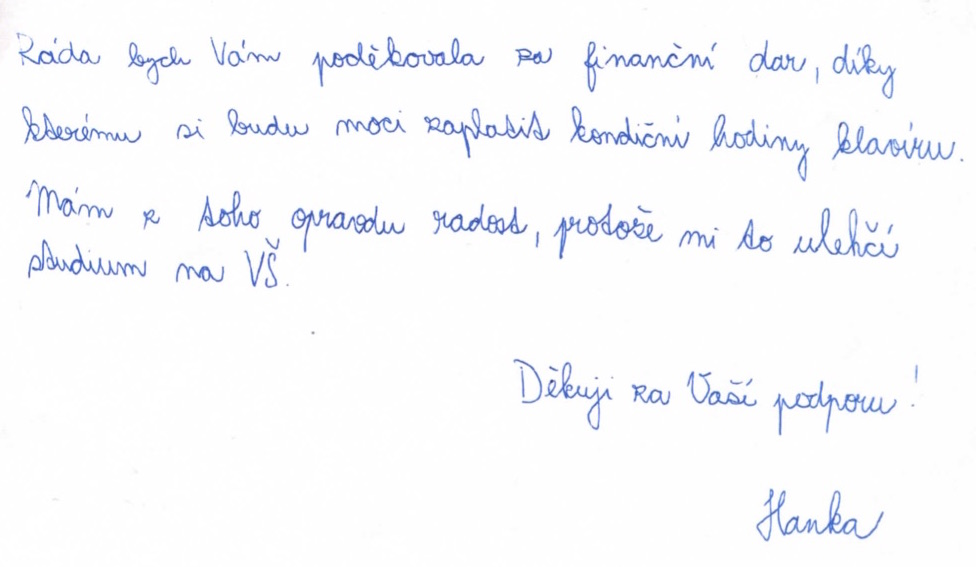 Ráda bych Vám poděkovala za finanční dar, díky
kterému si budu moci zaplatit kondiční hodiny klavíru.
Mám z toho opravdu radost, protože mi to ulehčí
studium na VŠ.
Děkuji za Vaší podporu!
Hanka